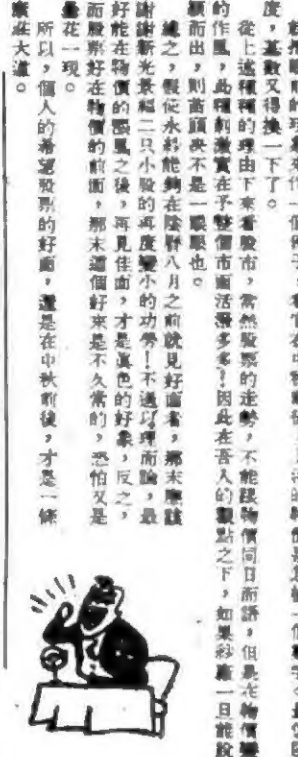 度，基數又得換一下了。
從上述種種的理由下來看股市，當然股票的走勢，不能跟物價同日而語，但是在物價變
的作風，此種刺激實在予整個市面活潑多多！因此在吾人的觀點之下，如果紗廠一旦能脫
穎而出，則苗頭決不是一眼眼也。
總之，假使永紗能夠在陰曆八月之前就見好面者，那末應該
謝謝新光景福二只小股的再度變小的功勞！不過以理而論，最
好能在物價的颶風之後，再見佳面，才是眞色的好象，反之，
而股票好在物價的前面，那末這個好來是不久常的，恐怕又是
曇花一現。
所以，個人的希望股票的好面，還是在中秋前後，才是一條
康莊大道。